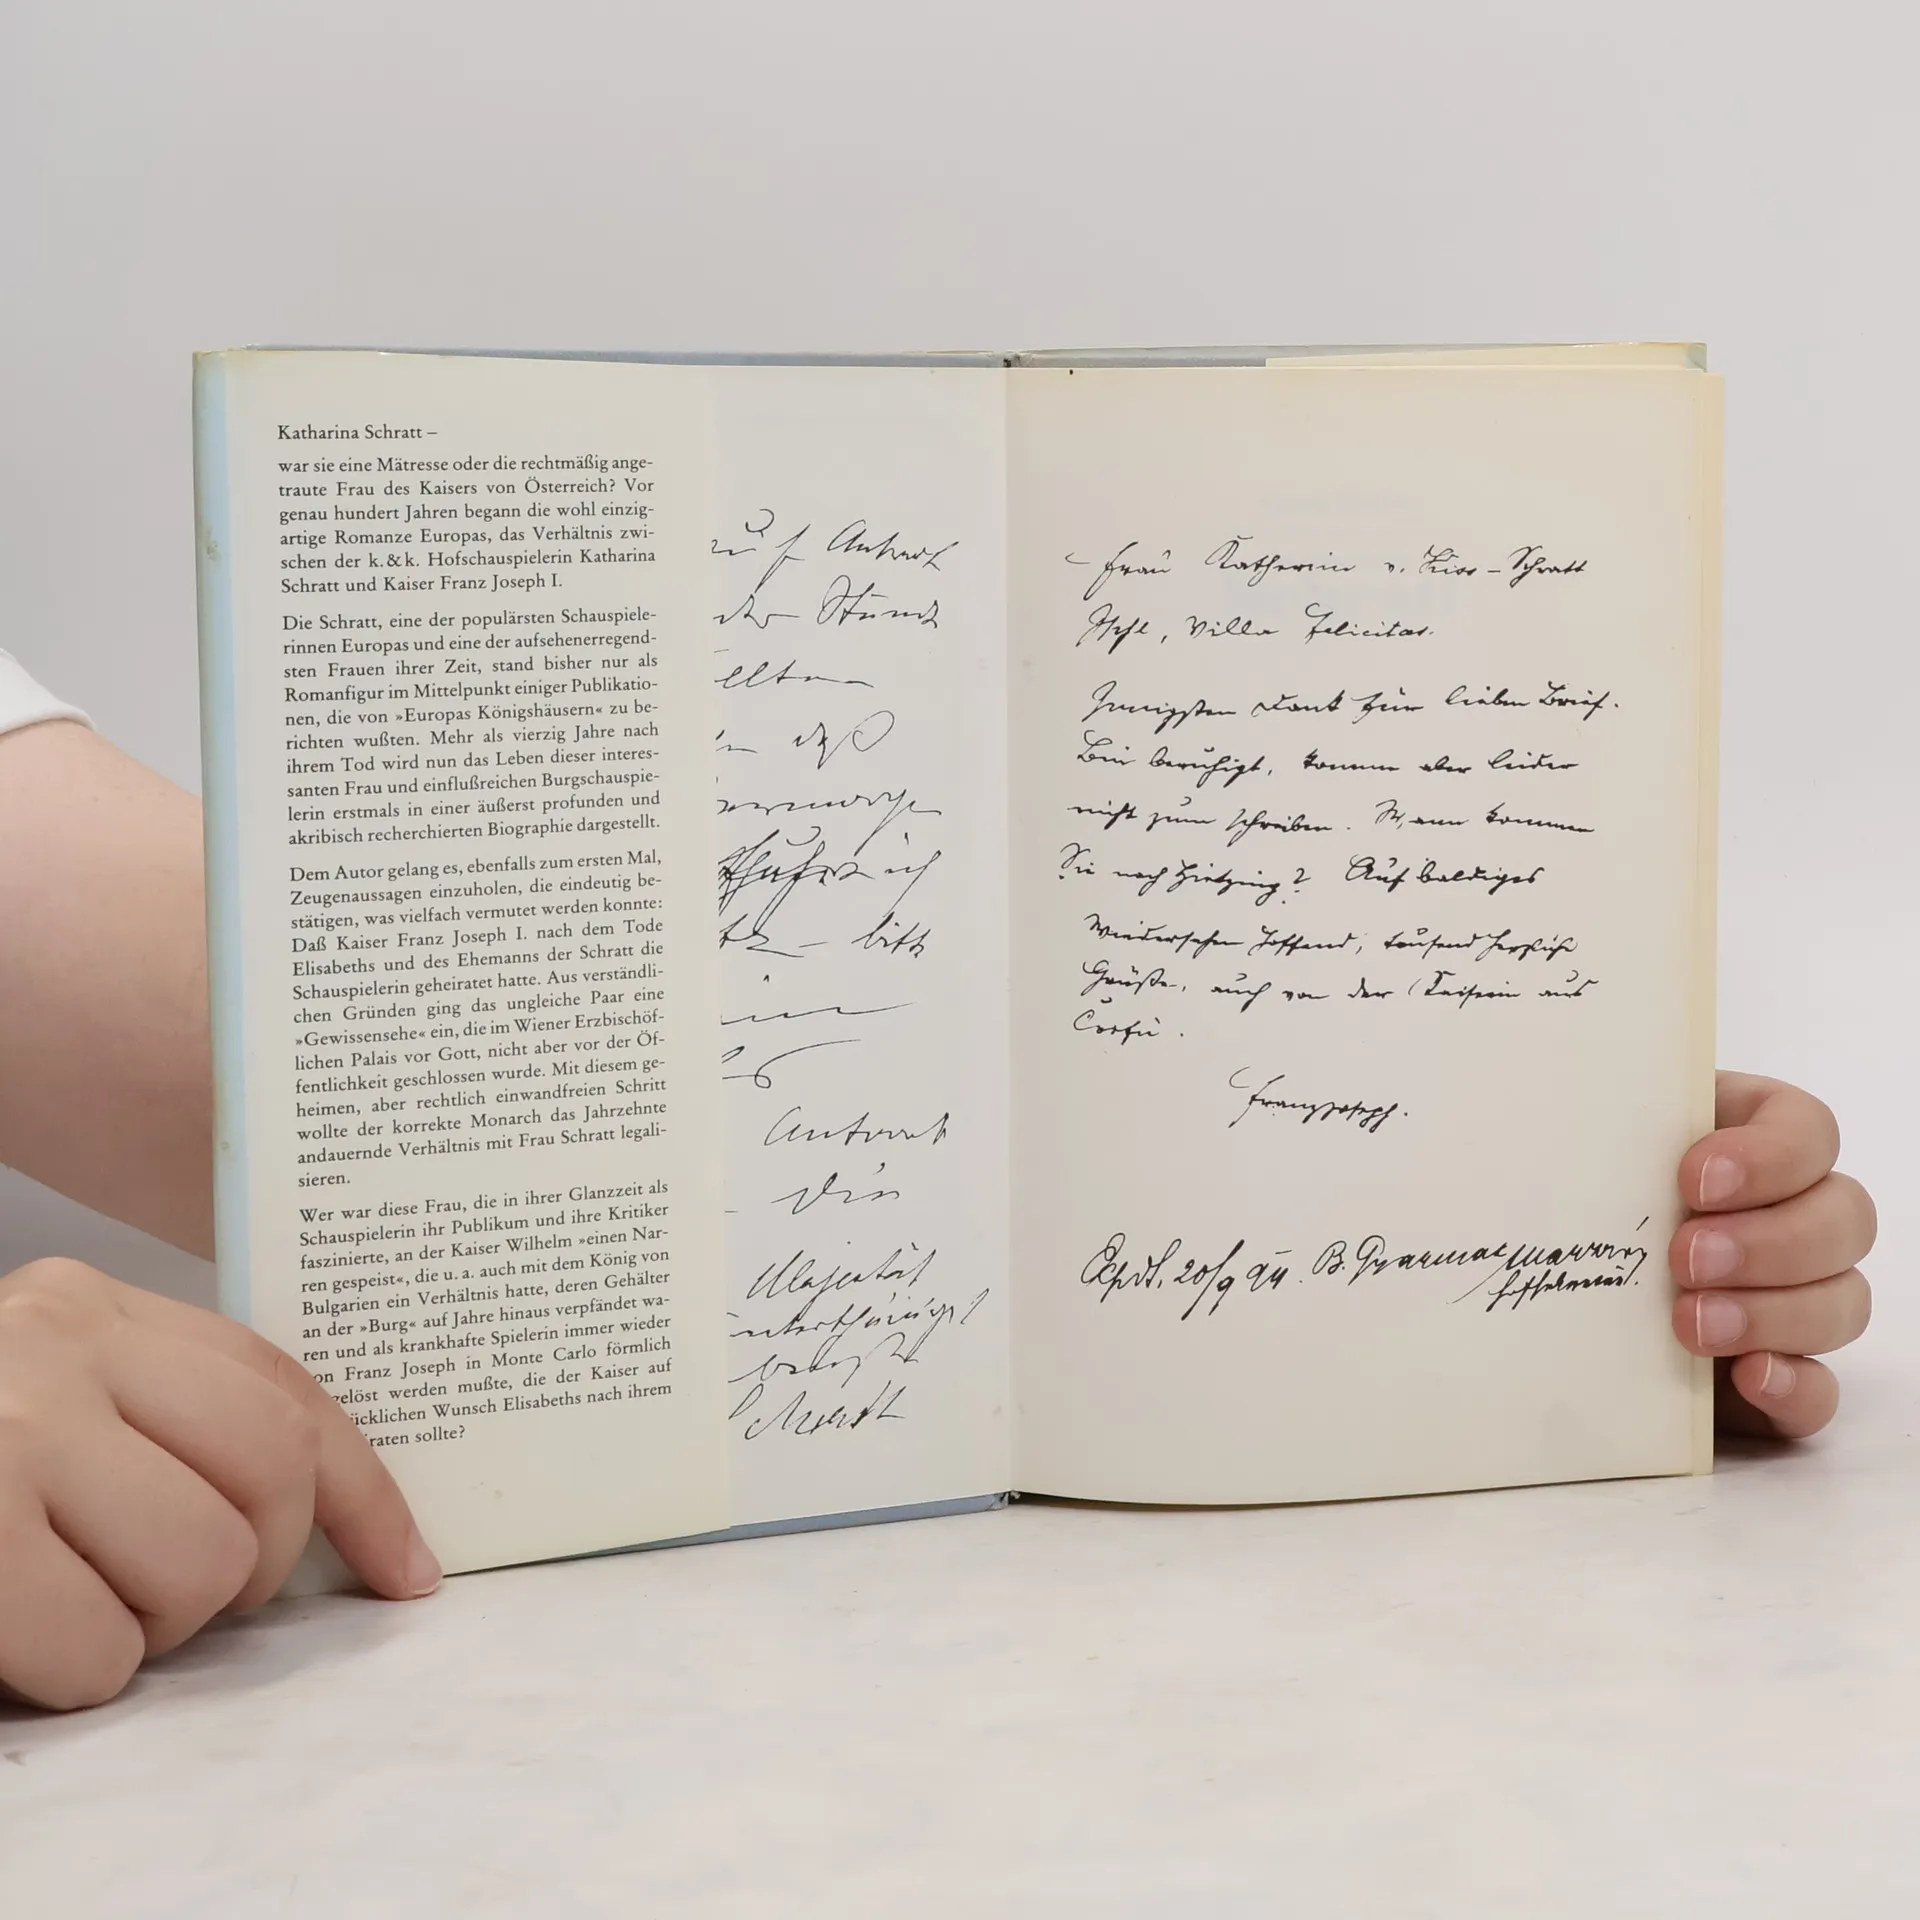 Katharina Schratt –
war sie eine Mätresse oder die rechtmäßig ange-
traute Frau des Kaisers von Österreich? Vor
genau hundert Jahren begann die wohl einzig-
artige Romanze Europas, das Verhältnis zwi-
schen der k.&k. Hofschauspielerin Katharina
Schratt und Kaiser Franz Joseph I.
Die Schratt, eine der populärsten Schauspiele-
rinnen Europas und eine der aufsehenerregend-
sten Frauen ihrer Zeit, stand bisher nur als
Romanfigur im Mittelpunkt einiger Publikatio-
nen, die von »Europas Königshäusern« zu be-
richten wußten. Mehr als vierzig Jahre nach
ihrem Tod wird nun das Leben dieser interes-
santen Frau und einflußreichen Burgschauspie-
lerin erstmals in einer äußerst profunden und
akribisch recherchierten Biographie dargestellt.
Dem Autor gelang es, ebenfalls zum ersten Mal,
Zeugenaussagen einzuholen, die eindeutig be-
stätigen, was vielfach vermutet werden konnte:
Daß Kaiser Franz Joseph I. nach dem Tode
Elisabeths und des Ehemanns der Schratt die
Schauspielerin geheiratet hatte. Aus verständli-
chen Gründen ging das ungleiche Paar eine
»Gewissensehe« ein, die im Wiener Erzbischöf-
lichen Palais vor Gott, nicht aber vor der Öf-
fentlichkeit geschlossen wurde. Mit diesem ge-
heimen, aber rechtlich einwandfreien Schritt
wollte der korrekte Monarch das Jahrzehnte
andauernde Verhältnis mit Frau Schratt legali-
sieren.
Wer war diese Frau, die in ihrer Glanzzeit als
Schauspielerin ihr Publikum und ihre Kritiker
faszinierte, an der Kaiser Wilhelm »einen Nar-
ren gespeist«, die u. a. auch mit dem König von
Bulgarien ein Verhältnis hatte, deren Gehälter
an der »Burg« auf Jahre hinaus verpfändet wa-
ren und als krankhafte Spielerin immer wieder
on Franz Joseph in Monte Carlo förmlich
gelöst werden mußte, die der Kaiser auf
ücklichen Wunsch Elisabeths nach ihrem
iraten sollte?
auf Antwort
der Stunde
daß
ich
bitte
Antwort
Die
Majestät
Schratt
Frau Katherine v. Kiss-Schratt
Ischl, Villa Felicitas.
Innigsten Dank für lieben Brief.
Bin beruhigt, komme aber leider
nicht zum schreiben. Wann kommen
Sie nach Hietzing? Auf baldiges
Wiedersehen hoffend, tausend herzliche
Grüße, auch von der Kaiserin aus
Corfu.
Franz Joseph.
Expdt. 20/9 94. B. Gyarmat